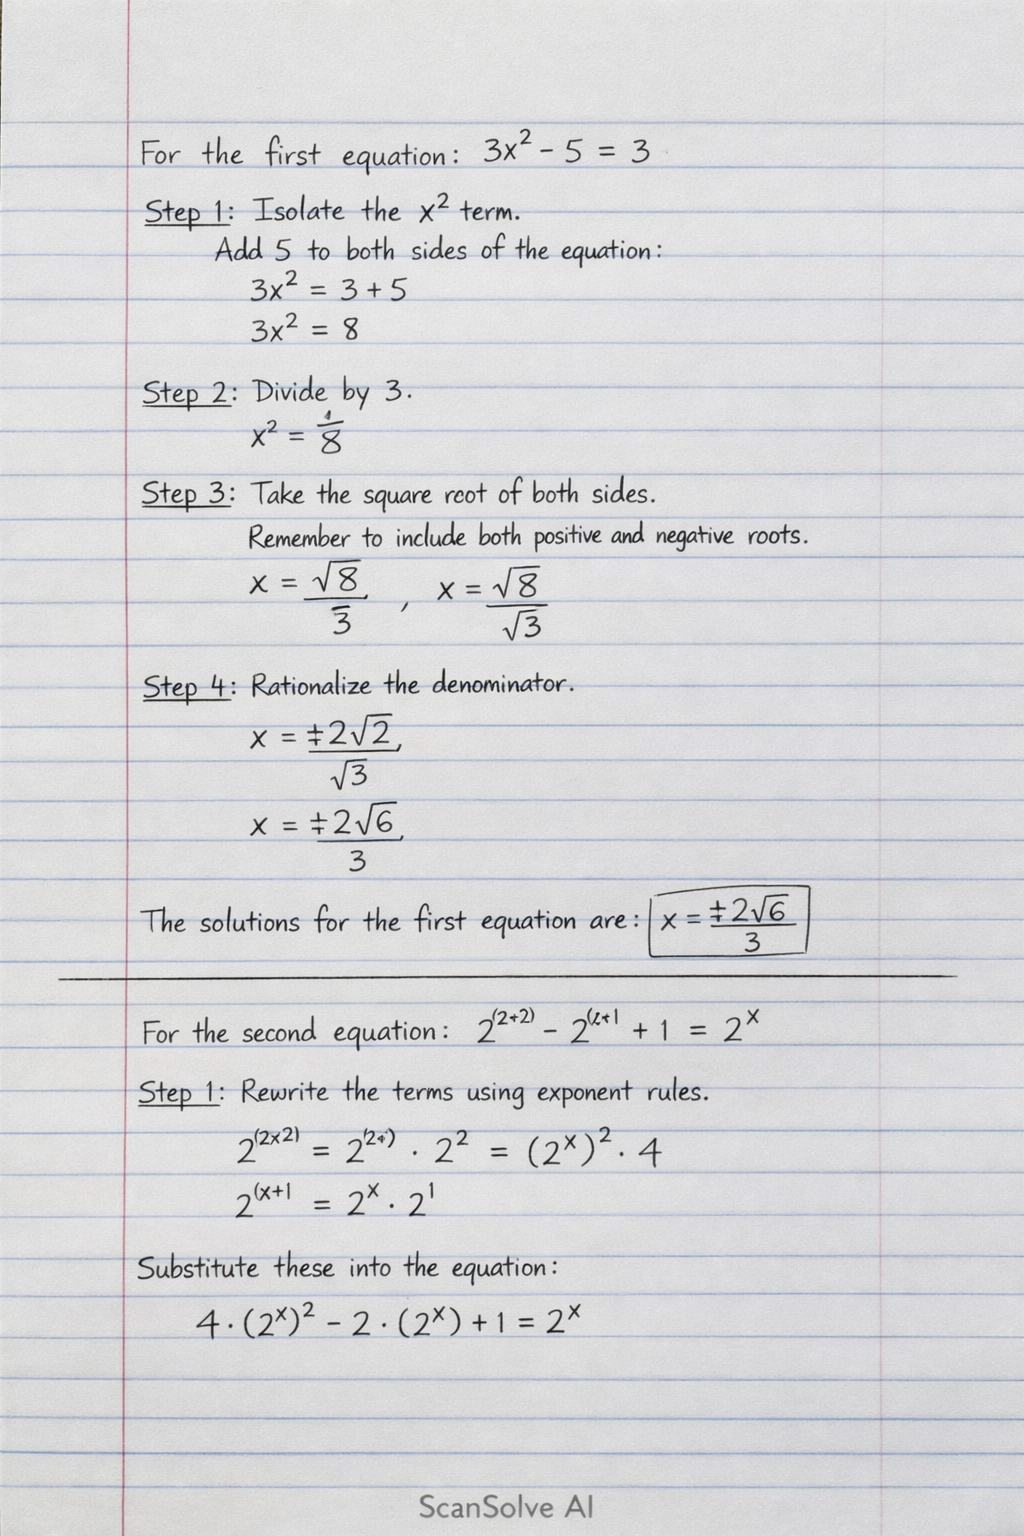 For the first equation: 3x² - 5 = 3
Step 1: Isolate the x² term.
Add 5 to both sides of the equation:
3x² = 3 + 5
3x² = 8
Step 2: Divide by 3.
x² = 1/8
Step 3: Take the square root of both sides.
Remember to include both positive and negative roots.
x = √8/3 , x = √8/√3
Step 4: Rationalize the denominator.
x = ∓2√2/√3
x = ∓2√6/3
The solutions for the first equation are: x = ∓2√6/3
For the second equation: 2^(2+2) - 2^( + 1 = 2^x
Step 1: Rewrite the terms using exponent rules.
2^(2x2) = 2^(2+) · 2² = (2^x)² · 4
2^(x+1 = 2^x · 2^1
Substitute these into the equation:
4 · (2^x)² - 2 · (2^x) + 1 = 2^x
ScanSolve AI